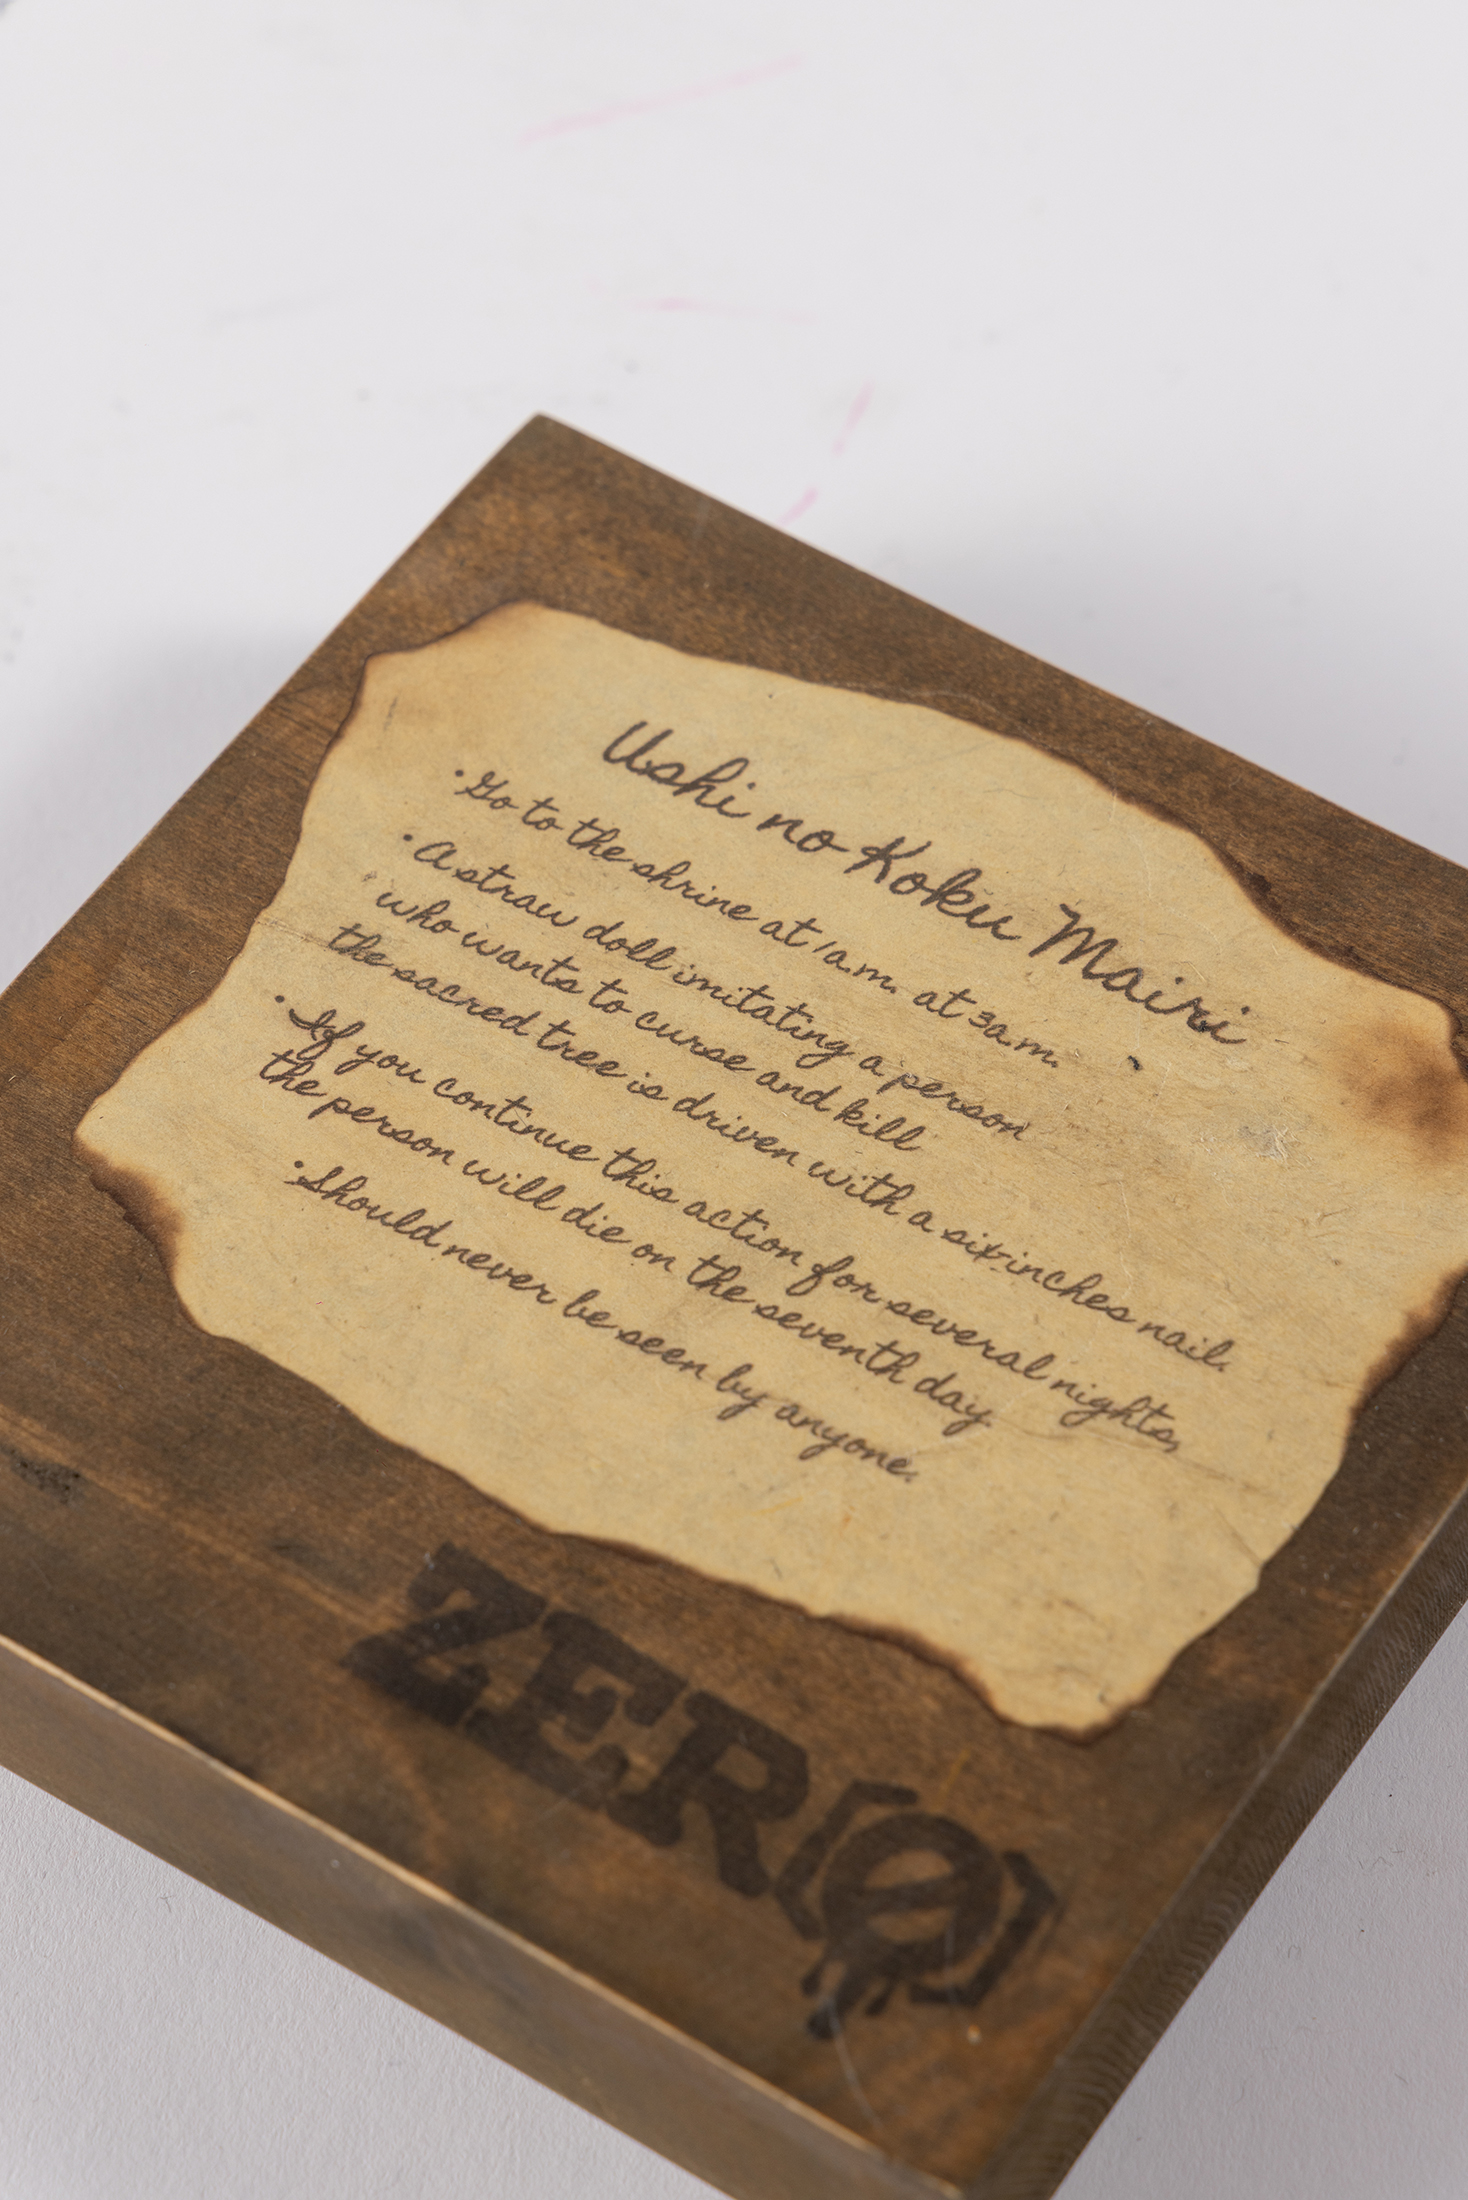 Ushi no Koku Mairi
• Go to the shrine at 1a.m. at 3a.m.
• A straw doll imitating a person
who wants to curse and kill
the sacred tree is driven with a six-inches nail.
• If you continue this action for several nights,
the person will die on the seventh day.
• Should never be seen by anyone.
ZERO